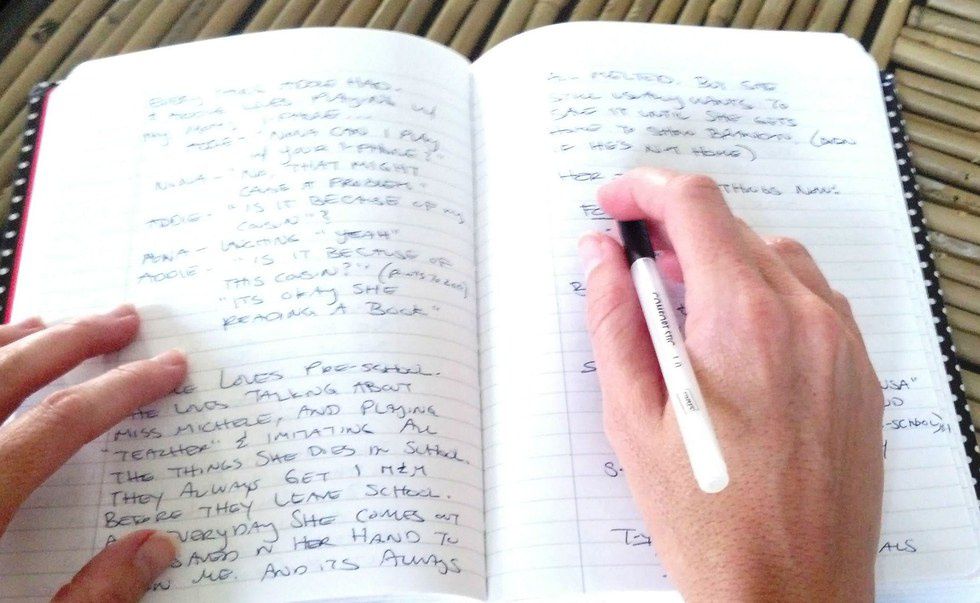 ADDIE HAD.
LOVES PLAYING W/
MY MOM'S
ADDIE - "NANA CAN I PLAY
W/ YOUR I-PHONE?"
NANA - "NO, THAT MIGHT
CAUSE A PROBLEM."
ADDIE - "IS IT BECAUSE OF MY
COUSIN"?
NANA - LAUGHING "YEAH"
ADDIE - "IS IT BECAUSE OF
THIS COUSIN?" (POINTS TO ZOEY)
"ITS OKAY SHE
READING A BOOK"
LOVES PRE-SCHOOL.
SHE LOVES TALKING ABOUT
MISS MICHELE, AND PLAYING
"TEACHER" & IMITATING ALL
THE THINGS SHE DOES IN SCHOOL.
THEY ALWAYS GET 1 M&M
BEFORE THEY LEAVE SCHOOL.
EVERYDAY SHE COMES OUT
SAVED IN HER HAND TO
ME. AND ITS ALWAYS
ALL MELTED. BUT SHE
STILL USUALLY WANTS TO
SAVE IT UNTIL SHE GETS
HOME TO SHOW BRANDON. (EVEN
IF HE'S NOT HOME)
HER THINGS NOW:
USA"
-SCHOOL)
ALS